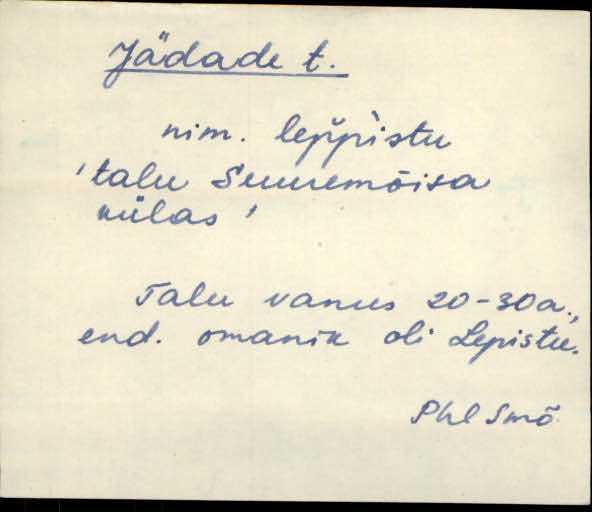 Jädade t.
nim. lep̆p̀istu
'talu Suuremõisa
külas'
Talu vanus 20-30a.,
end. omanik oli Lepistu.
Phl Smõ